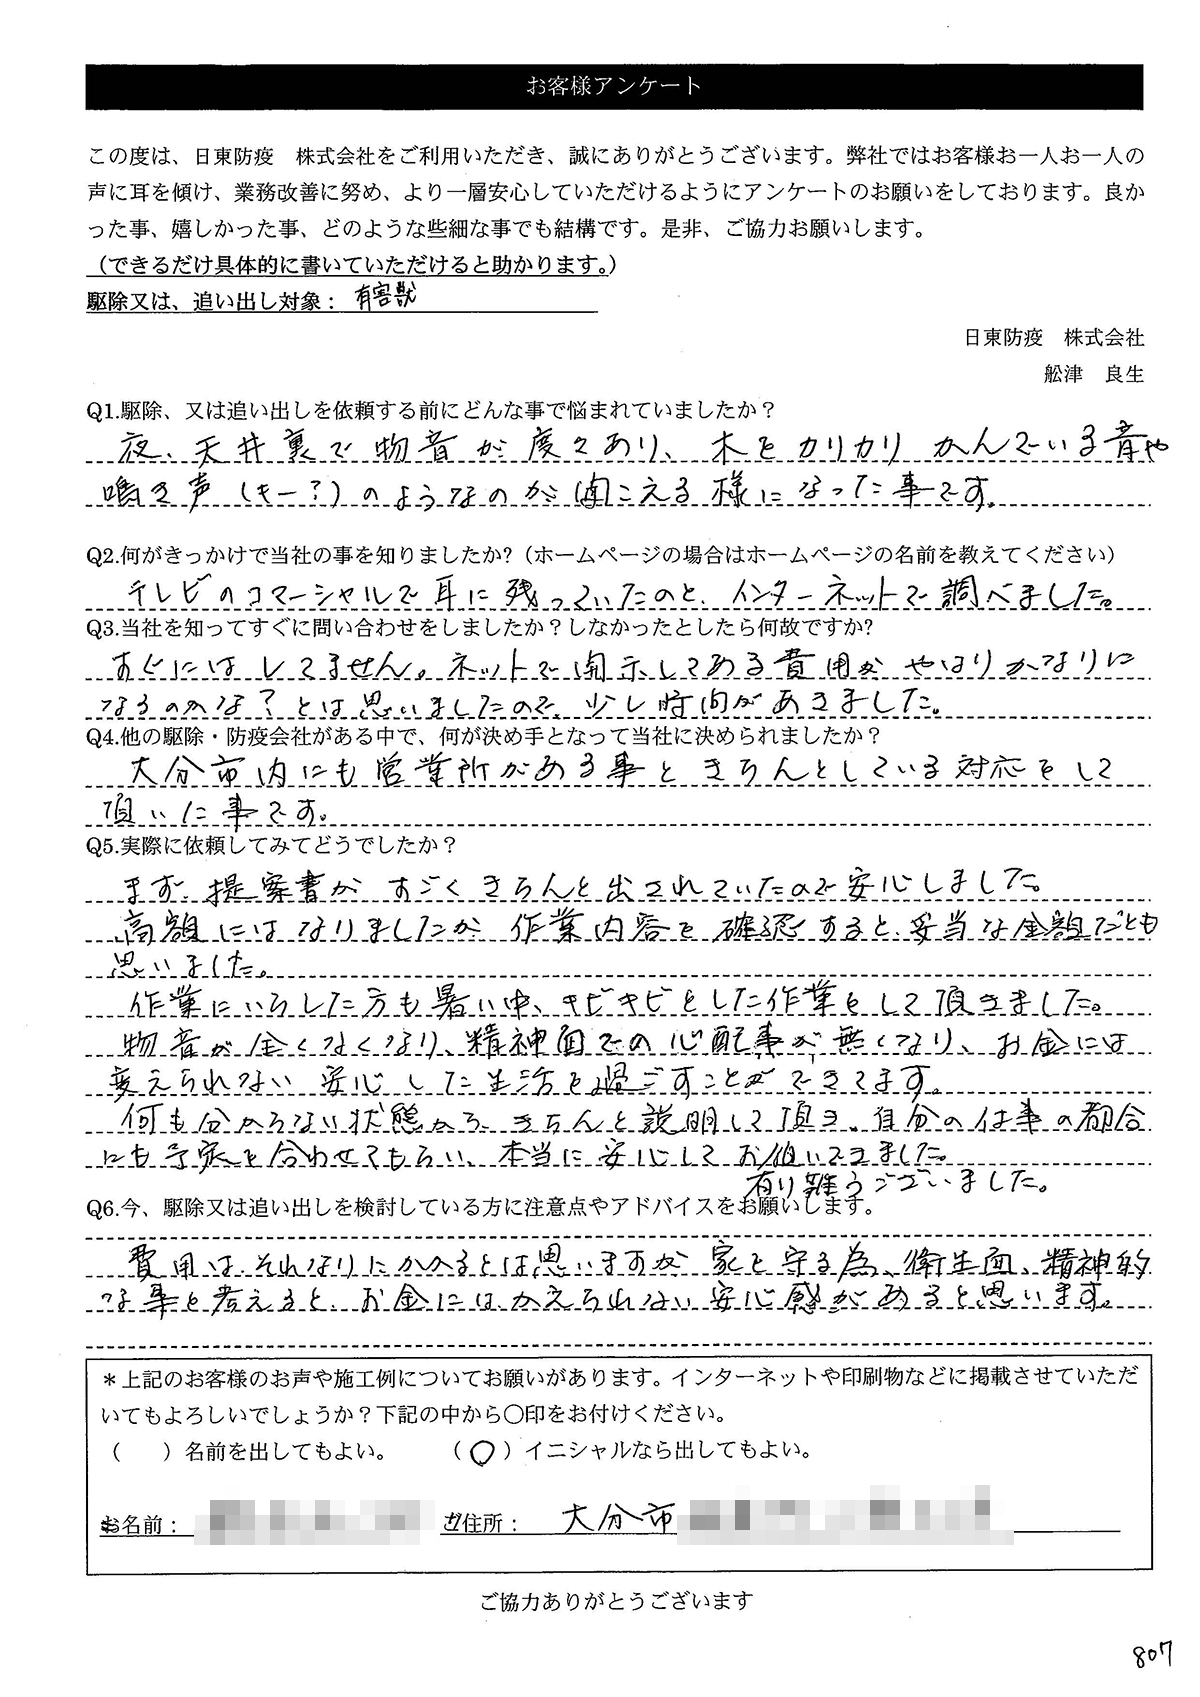 お客様アンケート
この度は、日東防疫　株式会社をご利用いただき、誠にありがとうございます。弊社ではお客様お一人お一人の
声に耳を傾け、業務改善に努め、より一層安心していただけるようにアンケートのお願いをしております。良か
った事、嬉しかった事、どのような些細な事でも結構です。是非、ご協力お願いします。
（できるだけ具体的に書いていただけると助かります。）
駆除又は、追い出し対象：有害獣
日東防疫　株式会社
舩津　良生
Q1.駆除、又は追い出しを依頼する前にどんな事で悩まれていましたか？
夜、天井裏で物音が度々あり、木をカリカリかんでいる音や
鳴き声（キー？）のようなのが聞こえる様になった事です。
Q2.何がきっかけで当社の事を知りましたか?（ホームページの場合はホームページの名前を教えてください）
テレビのコマーシャルで耳に残っていたのと、インターネットで調べました。
Q3.当社を知ってすぐに問い合わせをしましたか？しなかったとしたら何故ですか?
すぐにはしてません。ネットで開示してある費用が やはりかなりに
なるのかな？とは思いましたので、少し時間があきました。
Q4.他の駆除・防疫会社がある中で、何が決め手となって当社に決められましたか？
大分市内にも営業所がある事ときちんとしている対応をして
頂いた事です。
Q5.実際に依頼してみてどうでしたか？
まず、提案書がすごくきちんと出されていたので安心しました。
高額にはなりましたが、作業内容を確認すると、妥当な金額だとも
思いました。
作業にいらした方も暑い中、キビキビとした作業をして頂きました。
物音が全くなくなり、精神面での心配事が無くなり、お金には
変えられない安心した生活を過ごすことができてます。
何も分からない状態から、きちんと説明して頂き、自分の仕事の都合
にも予定を合わせてもらい、本当に安心してお伺いできました。
有り難うございました。
Q6.今、駆除又は追い出しを検討している方に注意点やアドバイスをお願いします。
費用は、それなりにかかるとは思いますが 家を守る為、衛生面、精神的
な事を考えると、お金には、かえられない安心感があると思います。
＊上記のお客様のお声や施工例についてお願いがあります。インターネットや印刷物などに掲載させていただ
いてもよろしいでしょうか？下記の中から〇印をお付けください。
（　）名前を出してもよい。　（〇）イニシャルなら出してもよい。
お名前：　ご住所：大分市
ご協力ありがとうございます
807